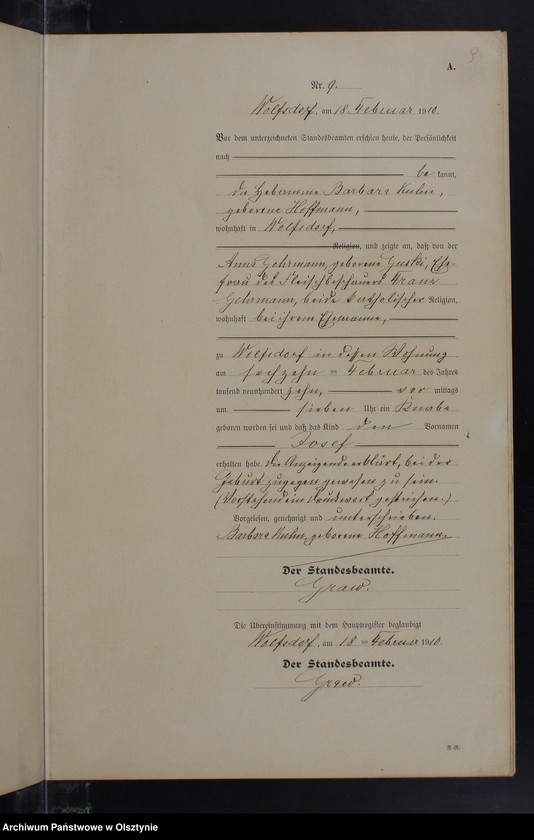 A.
Nr. 9.
Wolfsdorf, am 18. Februar 1910.
Vor dem unterzeichneten Standesbeamten erschien heute, der Persönlichkeit
nach
be kannt,
die Hebamme Barbara Kuhn,
geborene Hoffmann,
wohnhaft in Wolfsdorf,
Religion, und zeigte an, daß von der
Anna Gehrmann, geborene Guski, Ehe-
frau des Fleischbeschauers Franz
Gehrmann, beide katholischer Religion,
wohnhaft bei ihrem Ehemanne,
zu Wolfsdorf in dessen Wohnung
am sechzehn ten Februar des Jahres
tausend neunhundert zehn, vor mittags
um sieben Uhr ein Knabe
geboren worden sei und daß das Kind den Vornamen
Josef
erhalten habe. Die Anzeigende erklärt, bei der
Geburt zugegen gewesen zu sein.
(Vorstehend ein Druckwort gestrichen.)
Vorgelesen, genehmigt und unterschrieben.
Barbara Kuhn, geborene Hoffmann.
Der Standesbeamte.
Graw.
Die Übereinstimmung mit dem Hauptregister beglaubigt
Wolfsdorf, am 18 ten Februar 1910.
Der Standesbeamte.
Graw.
Archiwum Państwowe w Olsztynie